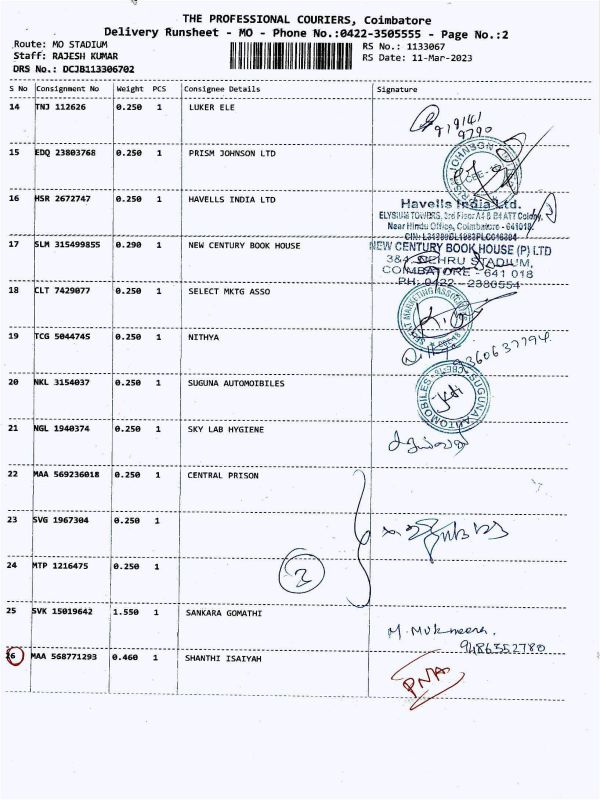 THE PROFESSIONAL COURIERS, Coimbatore
Delivery Runsheet - MO - Phone No.:0422-3505555 - Page No.:2
Route: MO STADIUM
Staff: RAJESH KUMAR
DRS No.: DCJB113306702
RS No.: 1133067
RS Date: 11-Mar-2023
S No Consignment No Weight PCS Consignee Details Signature
14 TNJ 112626 0.250 1 LUKER ELE
15 EDQ 23803768 0.250 1 PRISM JOHNSON LTD
16 HSR 2672747 0.250 1 HAVELLS INDIA LTD
Havells India Ltd.
ELYSIUM TOWERS, 3rd Floor A4 & B4 ATT Colony,
Near Hindu Office, Coimbatore - 641018.
17 SLM 315499855 0.290 1 NEW CENTURY BOOK HOUSE
NEW CENTURY BOOK HOUSE (P) LTD
NEHRU STADIUM,
COIMBATORE - 641 018
PH: 0422 - 2380554
18 CLT 7429077 0.250 1 SELECT MKTG ASSO
19 TCG 5044745 0.250 1 NITHYA
9360637794
20 NKL 3154037 0.250 1 SUGUNA AUTOMOIBILES
SUGUNA AUTOMOBILES
21 NGL 1940374 0.250 1 SKY LAB HYGIENE
22 MAA 569236018 0.250 1 CENTRAL PRISON
23 SVG 1967304 0.250 1
24 MTP 1216475 0.250 1
3
25 SVK 15019642 1.550 1 SANKARA GOMATHI
9486552780
26 MAA 568771293 0.460 1 SHANTHI ISAIYAH
PNA